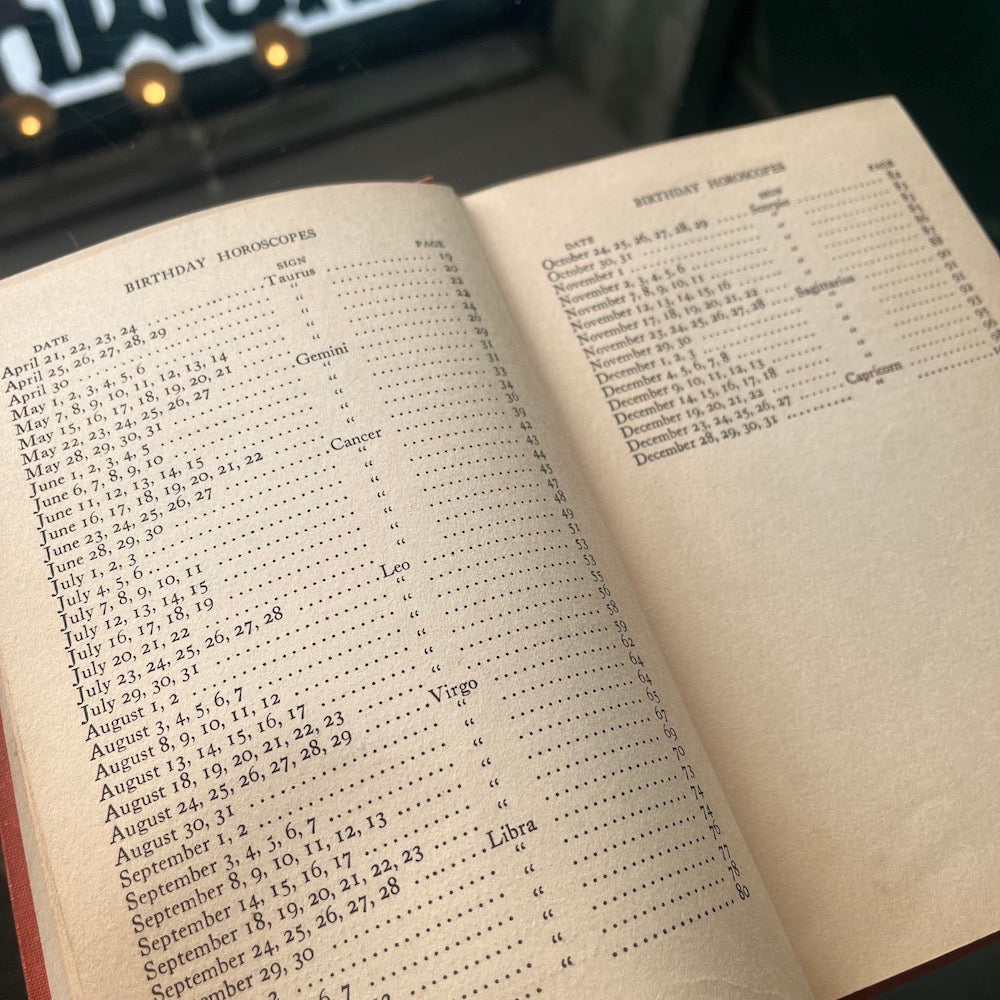 BIRTHDAY HOROSCOPES
DATE SIGN PAGE
April 21, 22, 23, 24 Taurus 19
April 25, 26, 27, 28, 29 " 20
April 30 " 22
May 1, 2, 3, 4, 5, 6 " 22
May 7, 8, 9, 10, 11, 12, 13, 14 " 24
May 15, 16, 17, 18, 19, 20, 21 " 25
May 22, 23, 24, 25, 26, 27 Gemini 29
May 28, 29, 30, 31 " 31
June 1, 2, 3, 4, 5 " 31
June 6, 7, 8, 9, 10 " 33
June 11, 12, 13, 14, 15 " 34
June 16, 17, 18, 19, 20, 21, 22 " 36
June 23, 24, 25, 26, 27 Cancer 39
June 28, 29, 30 " 42
July 1, 2, 3 " 43
July 4, 5, 6 " 44
July 7, 8, 9, 10, 11 " 45
July 12, 13, 14, 15 " 47
July 16, 17, 18, 19 " 48
July 20, 21, 22 " 49
July 23, 24, 25, 26, 27, 28 Leo 51
July 29, 30, 31 " 53
August 1, 2 " 53
August 3, 4, 5, 6, 7 " 55
August 8, 9, 10, 11, 12 " 56
August 13, 14, 15, 16, 17 " 58
August 18, 19, 20, 21, 22, 23 " 59
August 24, 25, 26, 27, 28, 29 Virgo 62
August 30, 31 " 64
September 1, 2 " 64
September 3, 4, 5, 6, 7 " 65
September 8, 9, 10, 11, 12, 13 " 67
September 14, 15, 16, 17 " 69
September 18, 19, 20, 21, 22, 23 " 70
September 24, 25, 26, 27, 28 Libra 73
September 29, 30 " 74
2 " 74
6, 7 " 76
" 77
78
80
BIRTHDAY HOROSCOPES
DATE SIGN PAGE
October 24, 25, 26, 27, 28, 29 Scorpio
October 30, 31 "
November 1 "
November 2, 3, 4, 5, 6 "
November 7, 8, 9, 10, 11 "
November 12, 13, 14, 15, 16 "
November 17, 18, 19, 20, 21, 22 "
November 23, 24, 25, 26, 27, 28 Sagittarius
November 29, 30 "
December 1, 2, 3 "
December 4, 5, 6, 7, 8 "
December 9, 10, 11, 12, 13 "
December 14, 15, 16, 17, 18 "
December 19, 20, 21, 22 "
December 23, 24, 25, 26, 27 Capricorn
December 28, 29, 30, 31 "